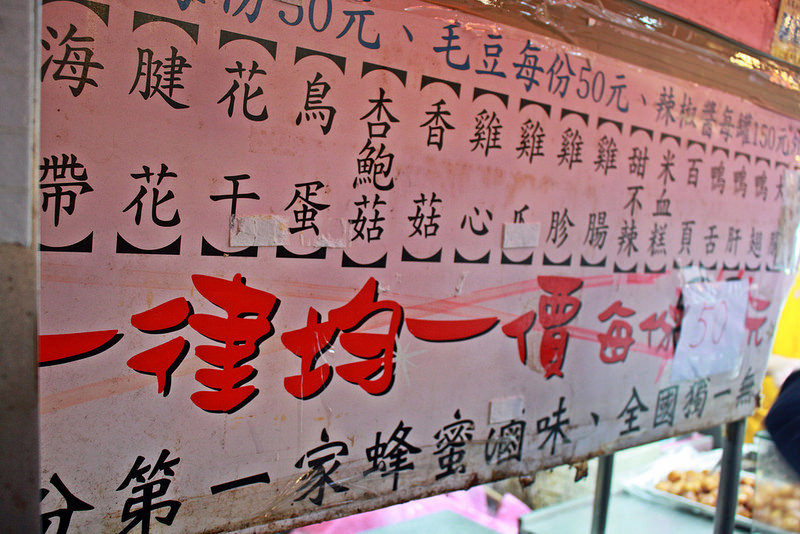 每份50元、毛豆每份50元、辣椒醬每罐150元
海帶
腱花
花干
鳥蛋
杏鮑菇
香菇
雞心
雞爪
雞胗
雞腸
甜不辣
米血糕
百頁
鴨舌
鴨肝
鴨翅
一律均一價每份50元
份第一家蜂蜜滷味、全國獨一無